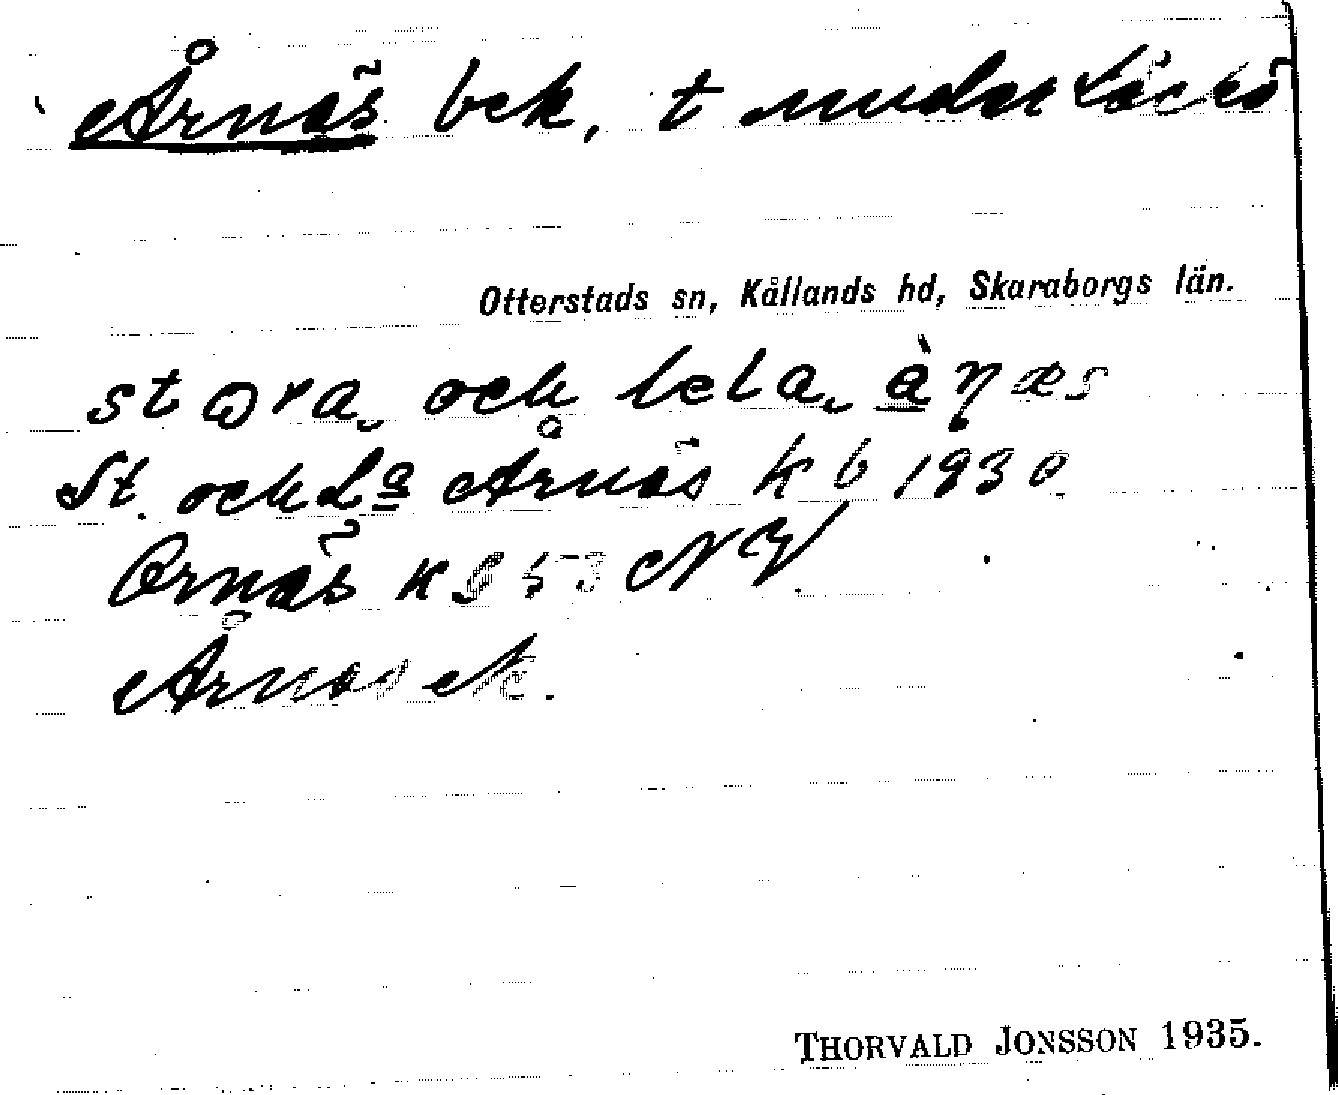 Årnäs bek, t under Läckö
Otterstads sn, Kållands hd, Skaraborgs län.
stora och lela åɳæs
St. och La Årnäs kb 1930
Ornäs K 853 NV.
Årnäs
THORVALD JONSSON 1935.